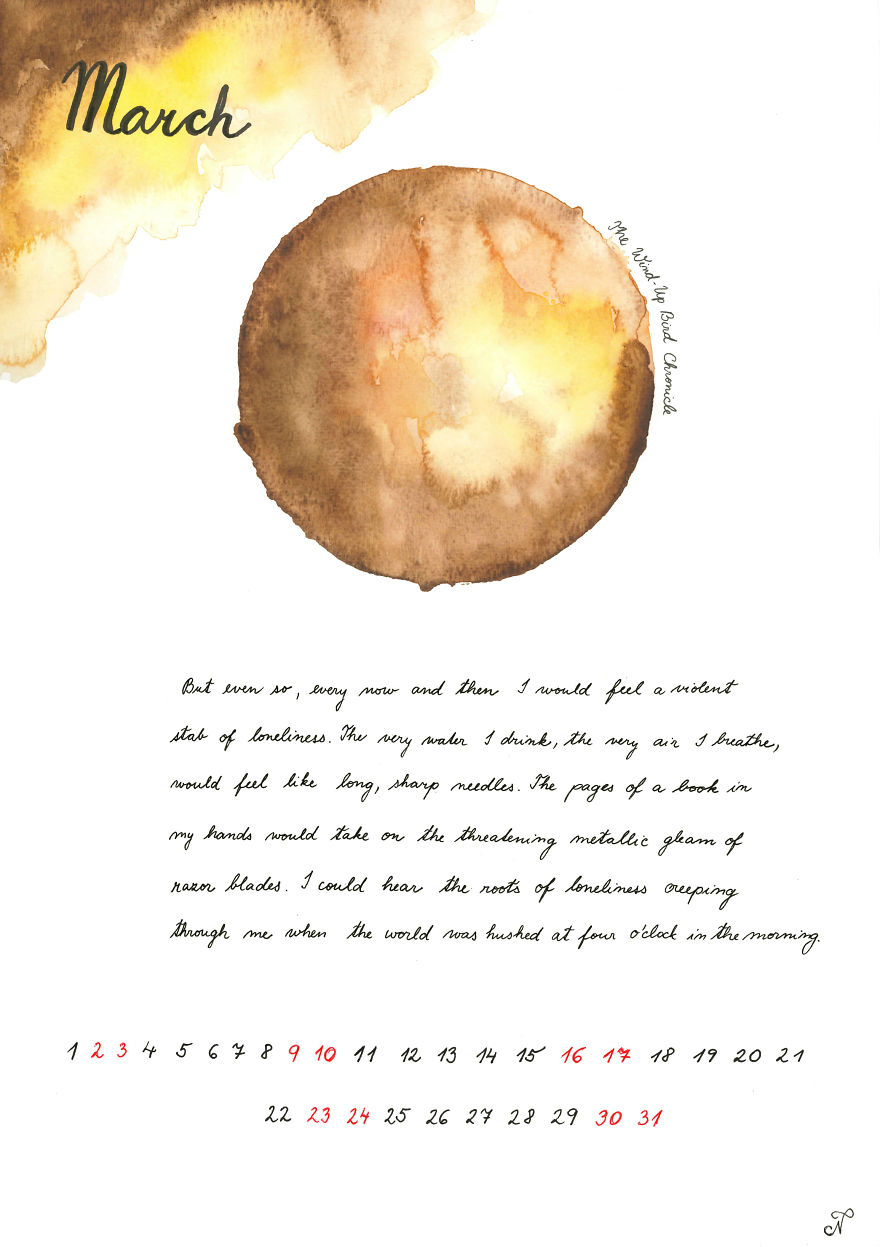 March
The Wind-Up Bird Chronicle
But even so, every now and then I would feel a violent
stab of loneliness. The very water I drink, the very air I breathe,
would feel like long, sharp needles. The pages of a book in
my hands would take on the threatening metallic gleam of
razor blades. I could hear the roots of loneliness creeping
through me when the world was hushed at four o'clock in the morning.
1 2 3 4 5 6 7 8 9 10 11 12 13 14 15 16 17 18 19 20 21
22 23 24 25 26 27 28 29 30 31